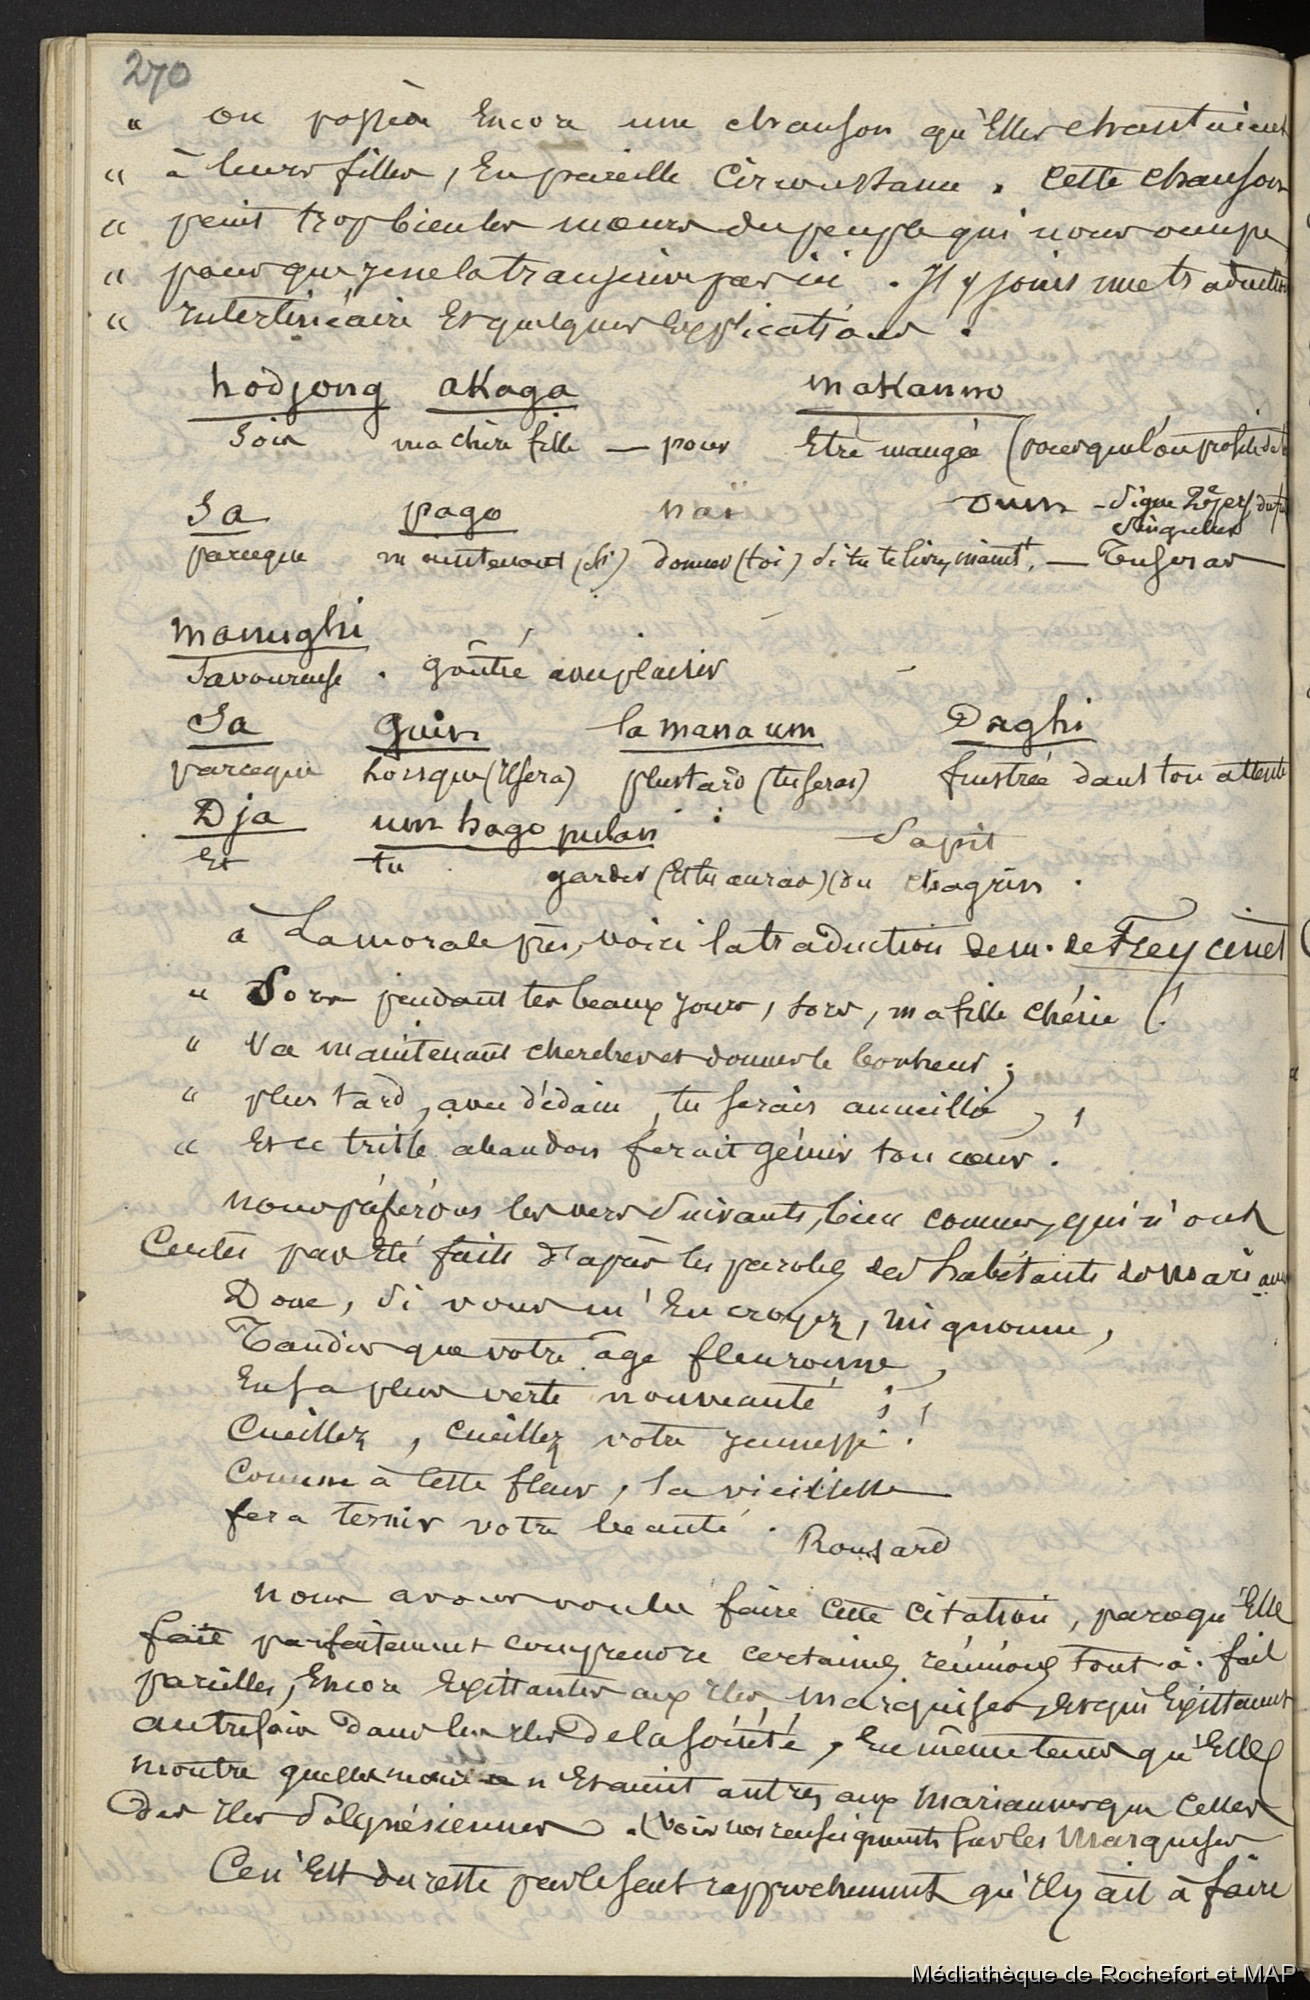 270
" on possède Encore une chanson qu'Elles chantaient
" à leurs filles, En pareille Circonstance. Cette chanson
" peint trop bien les mœurs du peuple qui nous occupe
" pour que je ne la transcrive pas ici. J'y joins une traduction
" interlinéaire Et quelques Explications.
hodjong akaga makanno
Sois ma chère fille — pour Etre mangée (pour que l'on profite de
Sa pago naï oum - Signe 2e pers. du fut
Singulier
parceque maintenant (si) donner (toi) si tu te livres maint. — Tu seras
mannghi
Savoureuse. goûtée avec plaisir
Sa guin lamanaum Daghi
parceque lorsque (il sera) plus tard (tu seras) frustrée dans ton attente
Dja um hago pulan Sapit
Et tu garder (Et tu auras) (du chagrin.
à La morale près, voici la traduction de m. de Freycinet
" Sors pendant tes beaux jours, sors, ma fille chérie!
" Va maintenant chercher et donner le bonheur;
" plus tard, avec dédain, tu serais accueillie,
" Et ce triste abandon ferait gémir ton cœur.
nous préférons les vers Suivants, bien connus, qui n'ont
Certes pas Eté faits d'après les paroles des habitants des Marianes
Donc, Si vous m'En croyez, mignonne,
Tandis que votre âge fleuronne,
En sa plus verte nouveauté;
Cueillez, cueillez votre jeunesse!
Comme à cette fleur, la vieillesse
fera ternir votre beauté.
Ronsard
nous avons voulu faire Cette Citation, parcequ'Elle
fait parfaitement comprendre certaines réunions tout-à-fait
pareilles, Encore Existantes aux Iles Marquises, Et qui Existaient
autrefois dans les Iles de la Société, En même temps qu'Elle
montre que les mœurs n'Etaient autres aux Mariannes que Celles
des Iles Polynésiennes. (Voir nos renseignements sur les Marquises
Ce n'Est du reste pas le seul rapprochement qu'il y ait à faire
Médiathèque de Rochefort et MAP